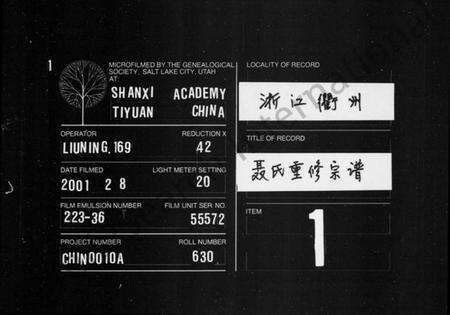 1
MICROFILMED BY THE GENEALOGICAL
SOCIETY, SALT LAKE CITY, UTAH
AT:
SHANXI ACADEMY
TIYUAN CHINA
OPERATOR REDUCTION X
LIUNING,169 42
DATE FILMED LIGHT METER SETTING
2001 2 8 20
FILM EMULSION NUMBER FILM UNIT SER. NO.
223-36 55572
PROJECT NUMBER ROLL NUMBER
CHIN0010A 630
LOCALITY OF RECORD
浙江衢州
TITLE OF RECORD
聂氏重修宗谱
ITEM
1